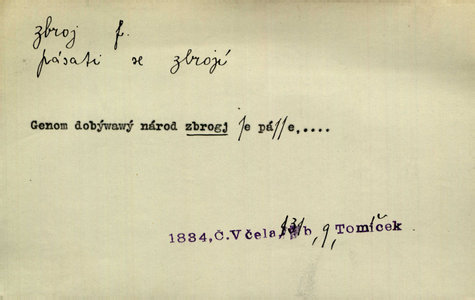 zbroj f.
pásati se zbrojí
Genom dobýwawý národ zbrogj ſe páſſe,....
1834,Č.Včela, b ,9, Tomíček